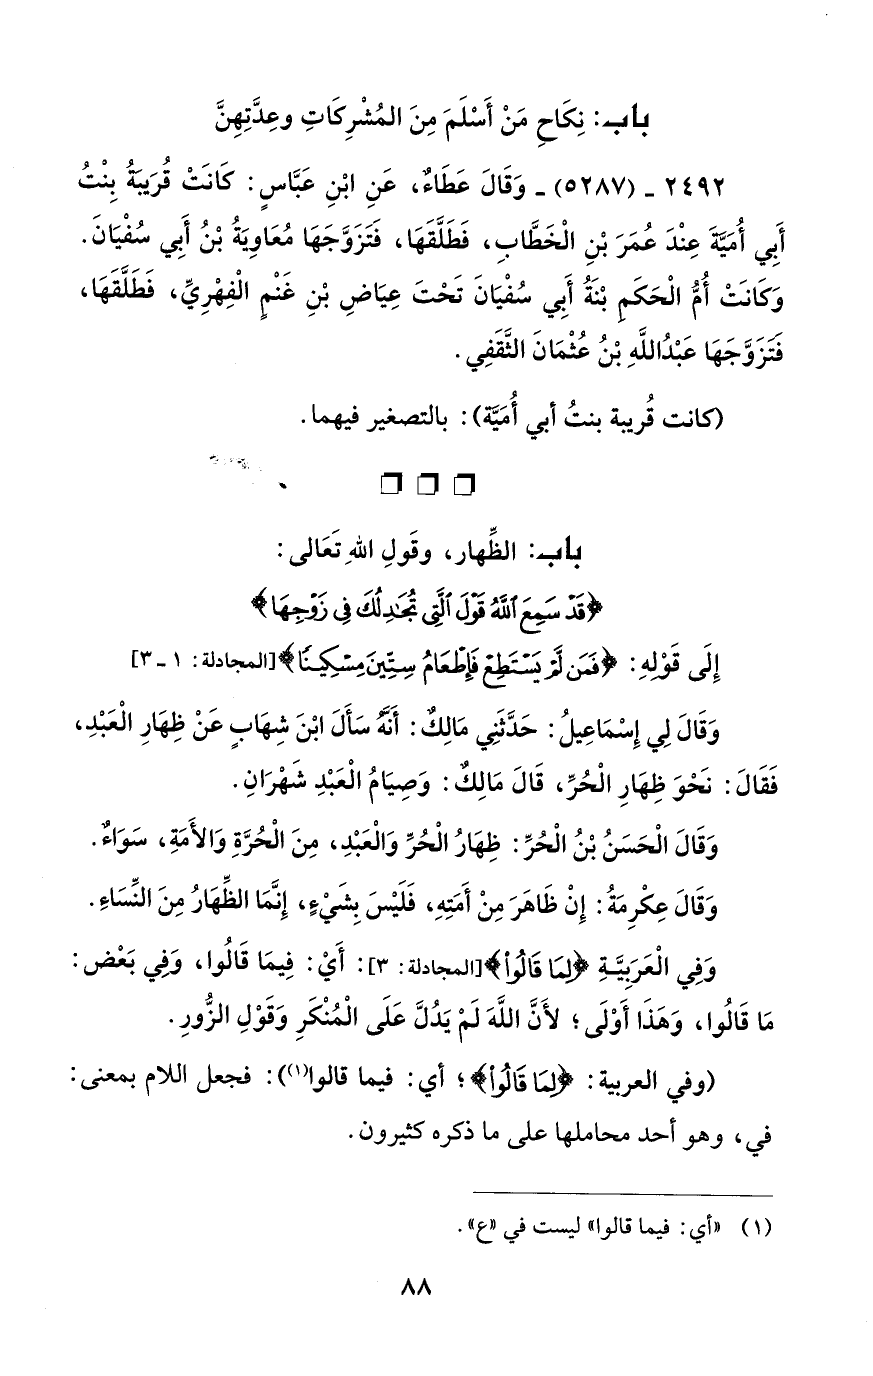 باب: نِكَاحِ مَنْ أَسْلَمَ مِنَ المُشْرِكَاتِ وعِدَّتِهِنَّ
٢٤٩٢ ـ (٥٢٨٧) ـ وَقَالَ عَطَاءٌ، عَنِ ابْنِ عَبَّاسٍ: كَانَتْ قُرَيبَةُ بِنْتُ
أَبِي أُمَيَّةَ عِنْدَ عُمَرَ بْنِ الْخَطَّابِ، فَطَلَّقَهَا، فَتَزَوَّجَهَا مُعَاوِيَةُ بْنُ أَبِي سُفْيَانَ.
وَكَانَتْ أُمُّ الْحَكَمِ بْنَةُ أَبِي سُفْيَانَ تَحْتَ عِيَاضِ بْنِ غَنْمٍ الْفِهْرِيِّ، فَطَلَّقَهَا،
فَتَزَوَّجَهَا عَبْدُاللَّهِ بْنُ عُثْمَانَ الثَّقَفِي.
(كانت قُريبة بنتُ أبي أُميَّة): بالتصغير فيهما.
باب: الظِّهار، وقَولِ اللهِ تَعَالى:
﴿قَدْ سَمِعَ ٱللَّهُ قَوْلَ ٱلَّتِي تُجَٰدِلُكَ فِي زَوْجِهَا﴾
إِلَى قَوْلِهِ: ﴿فَمَن لَّمْ يَسْتَطِعْ فَإِطْعَامُ سِتِّينَ مِسْكِينًا﴾ [المجادلة: ١ ـ ٣]
وَقَالَ لِي إِسْمَاعِيلُ: حَدَّثَنِي مَالِكٌ: أَنَّهُ سَأَلَ ابْنَ شِهَابٍ عَنْ ظِهَارِ الْعَبْدِ،
فَقَالَ: نَحْوَ ظِهَارِ الْحُرِّ، قَالَ مَالِكٌ: وَصِيَامُ الْعَبْدِ شَهْرَانِ.
وَقَالَ الْحَسَنُ بْنُ الْحُرِّ: ظِهَارُ الْحُرِّ وَالْعَبْدِ، مِنَ الْحُرَّةِ وَالأَمَةِ، سَوَاءٌ.
وَقَالَ عِكْرِمَةُ: إِنْ ظَاهَرَ مِنْ أَمَتِهِ، فَلَيْسَ بِشَيْءٍ، إِنَّمَا الظِّهَارُ مِنَ النِّسَاءِ.
وَفِي الْعَرَبِيَّةِ ﴿لِمَا قَالُواْ﴾ [المجادلة: ٣]: أَيْ: فِيمَا قَالُوا، وَفِي بَعْضِ:
مَا قَالُوا، وَهَذَا أَوْلَى؛ لأَنَّ اللَّهَ لَمْ يَدُلَّ عَلَى الْمُنْكَرِ وَقَوْلِ الزُّورِ.
(وفي العربية: ﴿لِمَا قَالُواْ﴾؛ أي: فيما قالوا(١)): فجعل اللام بمعنى:
في، وهو أحد محاملها على ما ذكره كثيرون.
(١) «أي: فيما قالوا» ليست في «ع».
٨٨